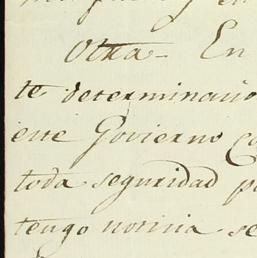 Otra- En
te determinaño
este Govierno Co
toda seguridad p
tengo noticia se